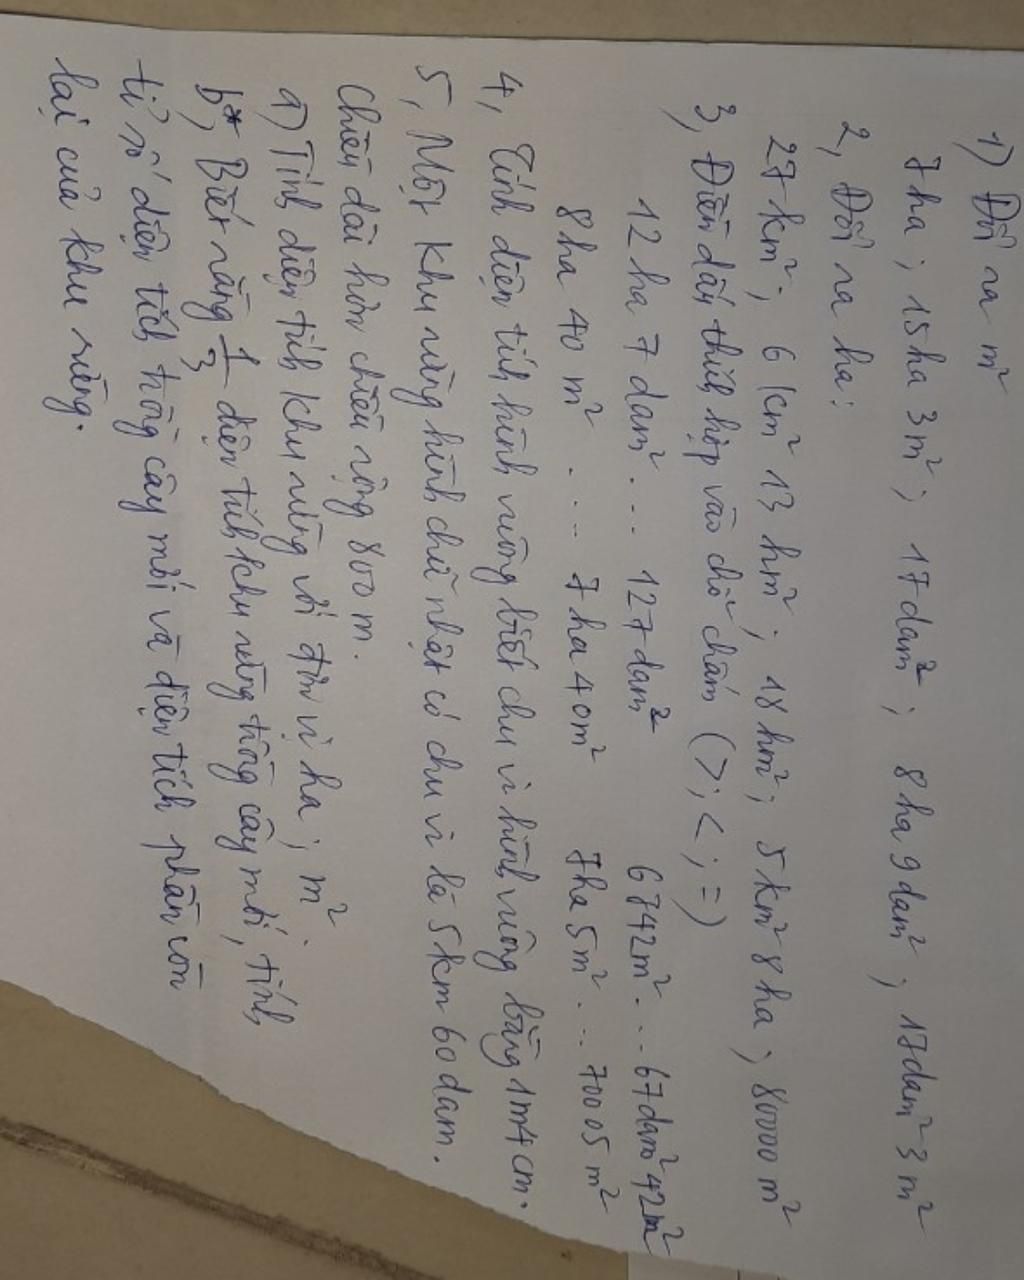 1) Đổi ra m²
7ha ; 15ha 3m² ; 17dam² ; 8ha 9dam² ; 17dam² 3m²
2, Đổi ra ha:
27km² ; 6km² 13hm² ; 18hm² ; 5km² 8ha ; 80000m²
3, Điền dấu thích hợp vào chỗ chấm (> ; < ; =)
12ha 7dam² ... 127dam² 6742m² ... 67dam² 42m²
8ha 40m² ... 7ha 40m² 7ha 5m² ... 7005m²
4, Tính diện tích hình vuông biết chu vi hình vuông bằng 1m4cm.
5, Một khu rừng hình chữ nhật có chu vi là 5km 60dam.
Chiều dài hơn chiều rộng 800m.
a) Tính diện tích khu rừng với đơn vị ha ; m²
b*, Biết rằng 1/3 diện tích khu rừng trồng cây mới, tính
tỉ số diện tích trồng cây mới và diện tích phần còn
lại của khu rừng.